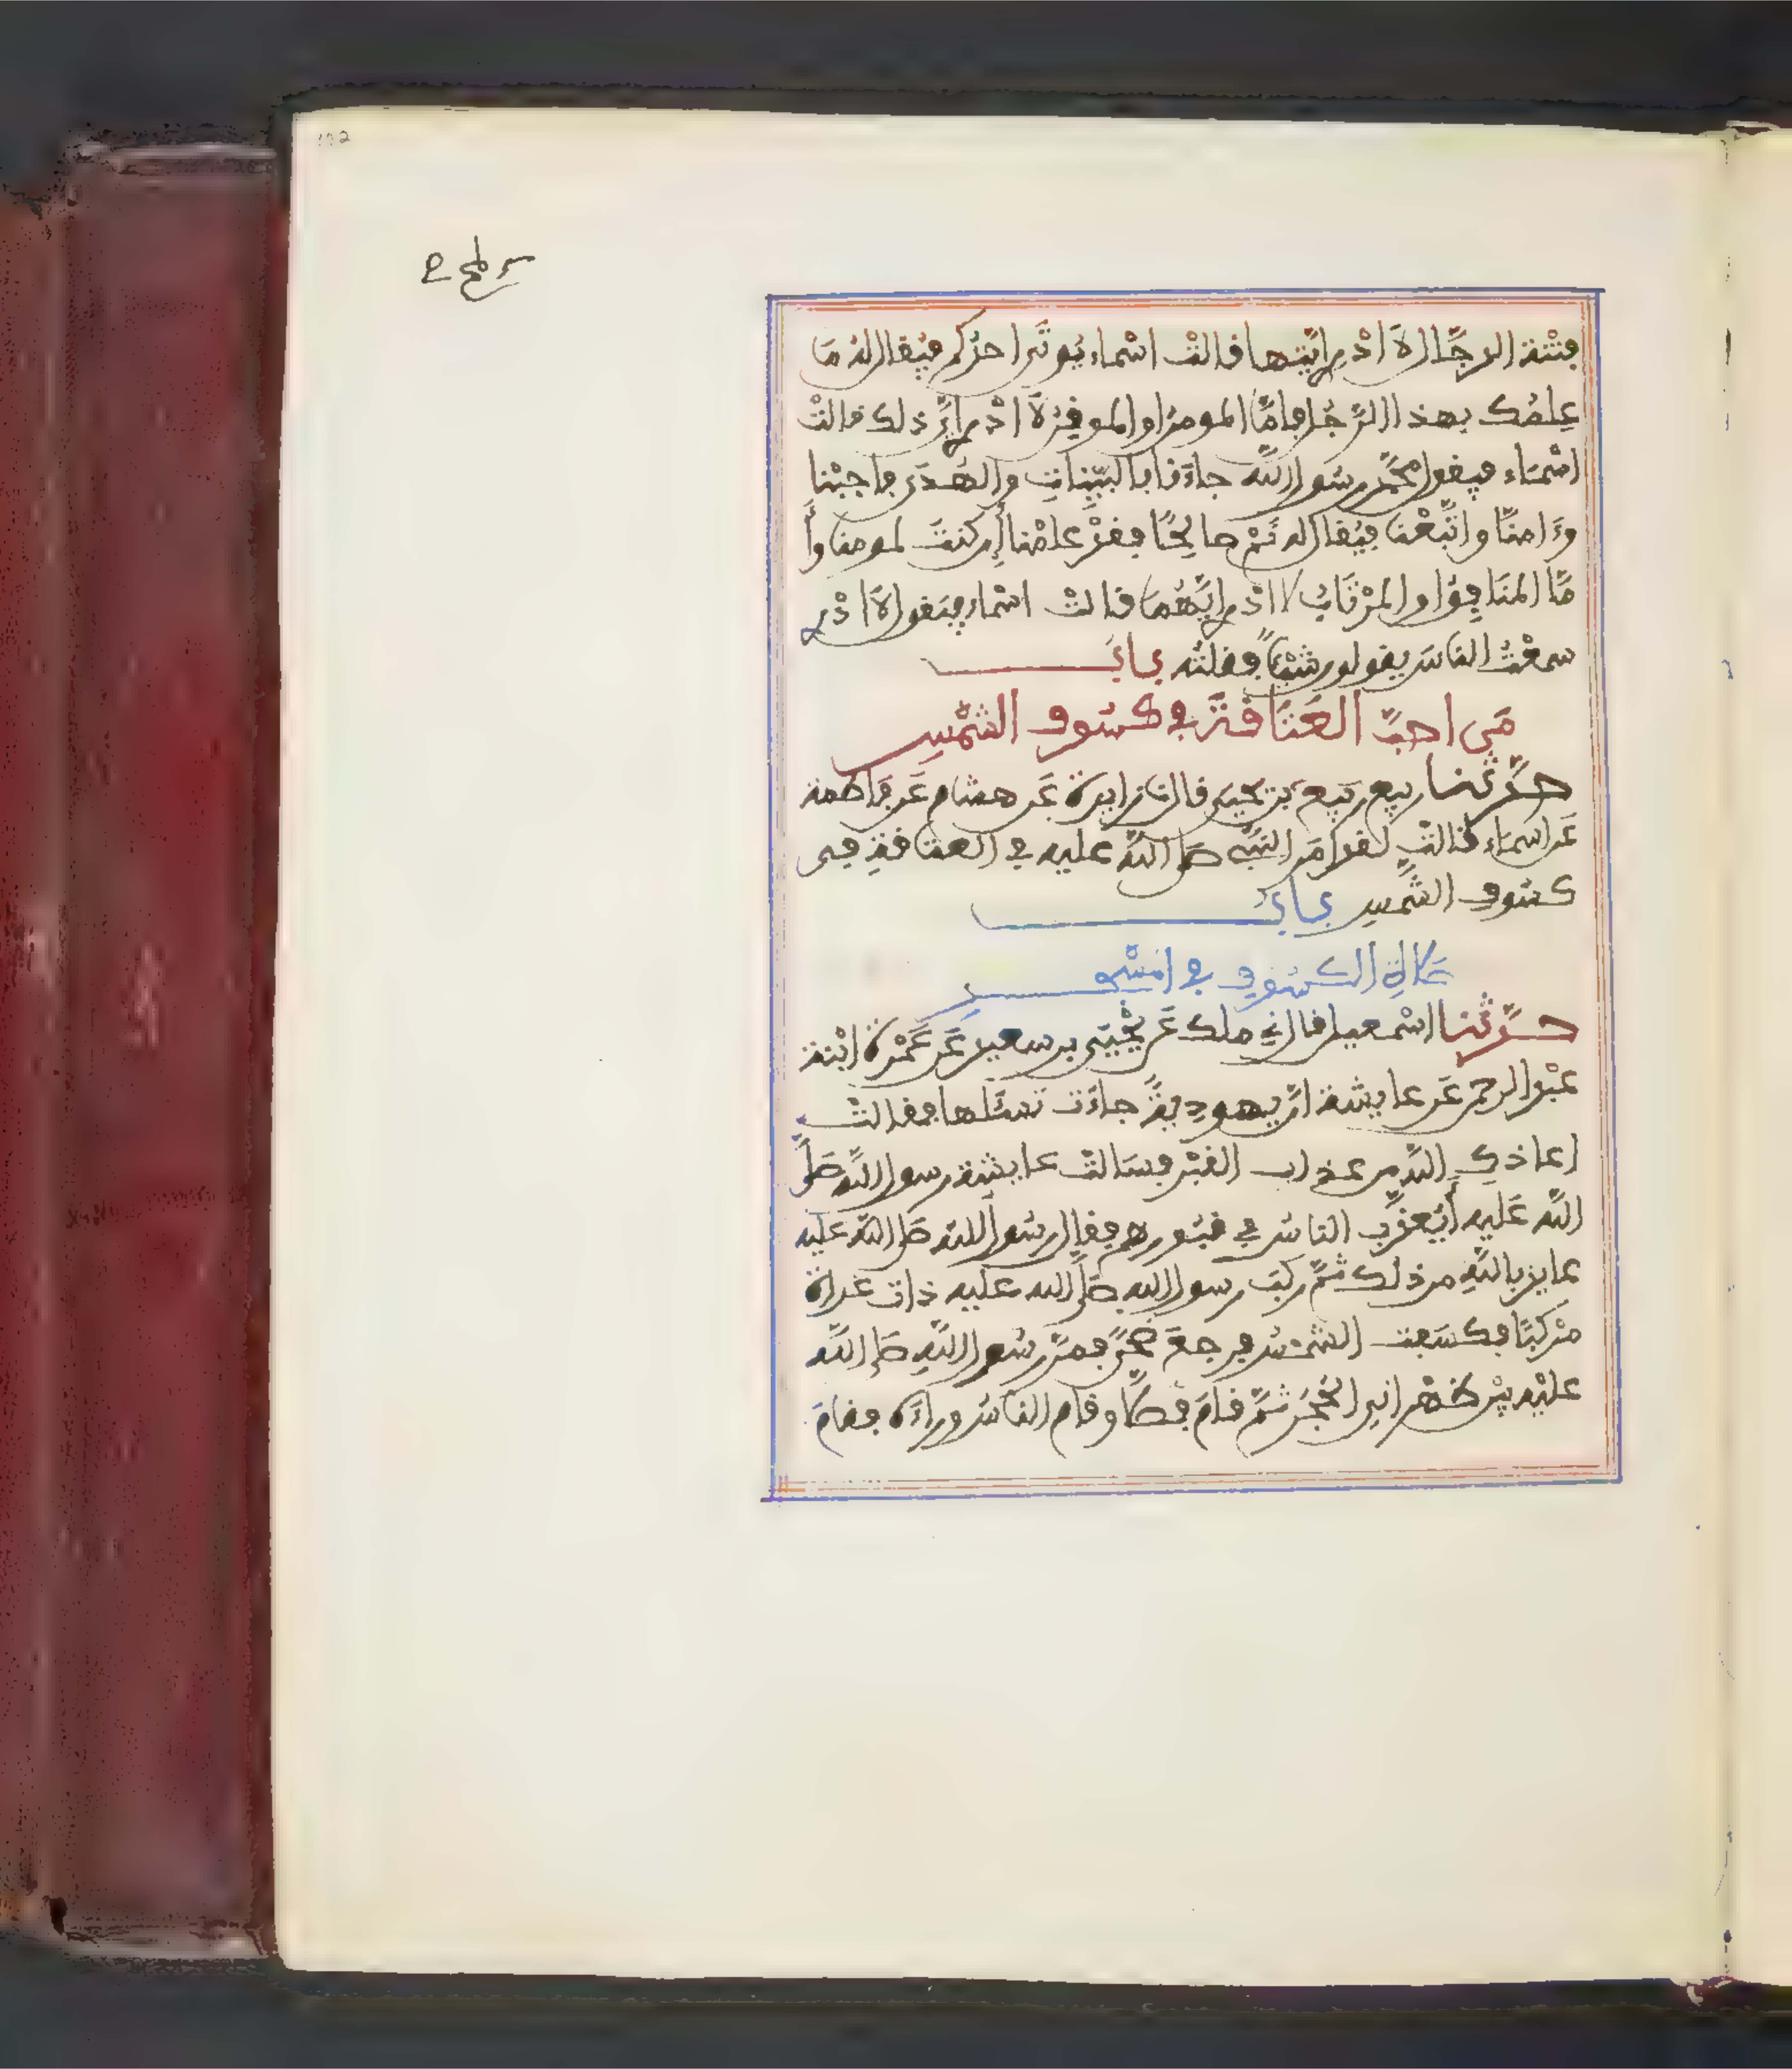 فتنة الدجّال لا أدري أيّتهما قالت اسماء يوتى احدكم فيقال له ما
علمك بهذا الرّجل فامّا المومن او الموقن لا أدري أيّ ذلك قالت
اسْماء فيقول محمّد رسول الله جاءنا بالبيّنات والهدى فاجبنا
وءامنّا واتّبعنا فيقال له نم صالحًا فقد علمنا إن كنت لمومنا وأ
مّا المنافق او المرتاب لا ادري أيّهما قالت اسْماء فيقول لا ادري
سمعت الناس يقولون شيئًا فقلته باب
من احبّ العتاقة في كسوف الشمس
حدّثنا ربيع بن يحيى قال نا زايدة عن هشام عن فاطمة
عن اسماء قالت لقد امر النبي صلى الله عليه في العتاقة في
كسوف الشمس باب
صلاة الكسوف في المسجد
حدّثنا اسْمعيل قال ني ملك عن يحيى بن سعيد عن عمْرة ابْنة
عبْد الرحمن عن عايشة انّ يهودية جاءت تسئلها فقالت
اعاذك الله من عذاب القبْر فسالت عايشة رسول الله صلى
الله عليه أيعذّب الناس في قبورهم فقال رسول الله صلى الله عليه
عايذ بالله من ذلك ثمّ ركب رسول الله صلى الله عليه ذات غداة
مرْكبًا فكسفت الشمس فرجع ضحًى فمرّ رسول الله صلى الله
عليه بين ظهراني الحجر ثمّ قام فصلى وقام الناس وراءه فقام